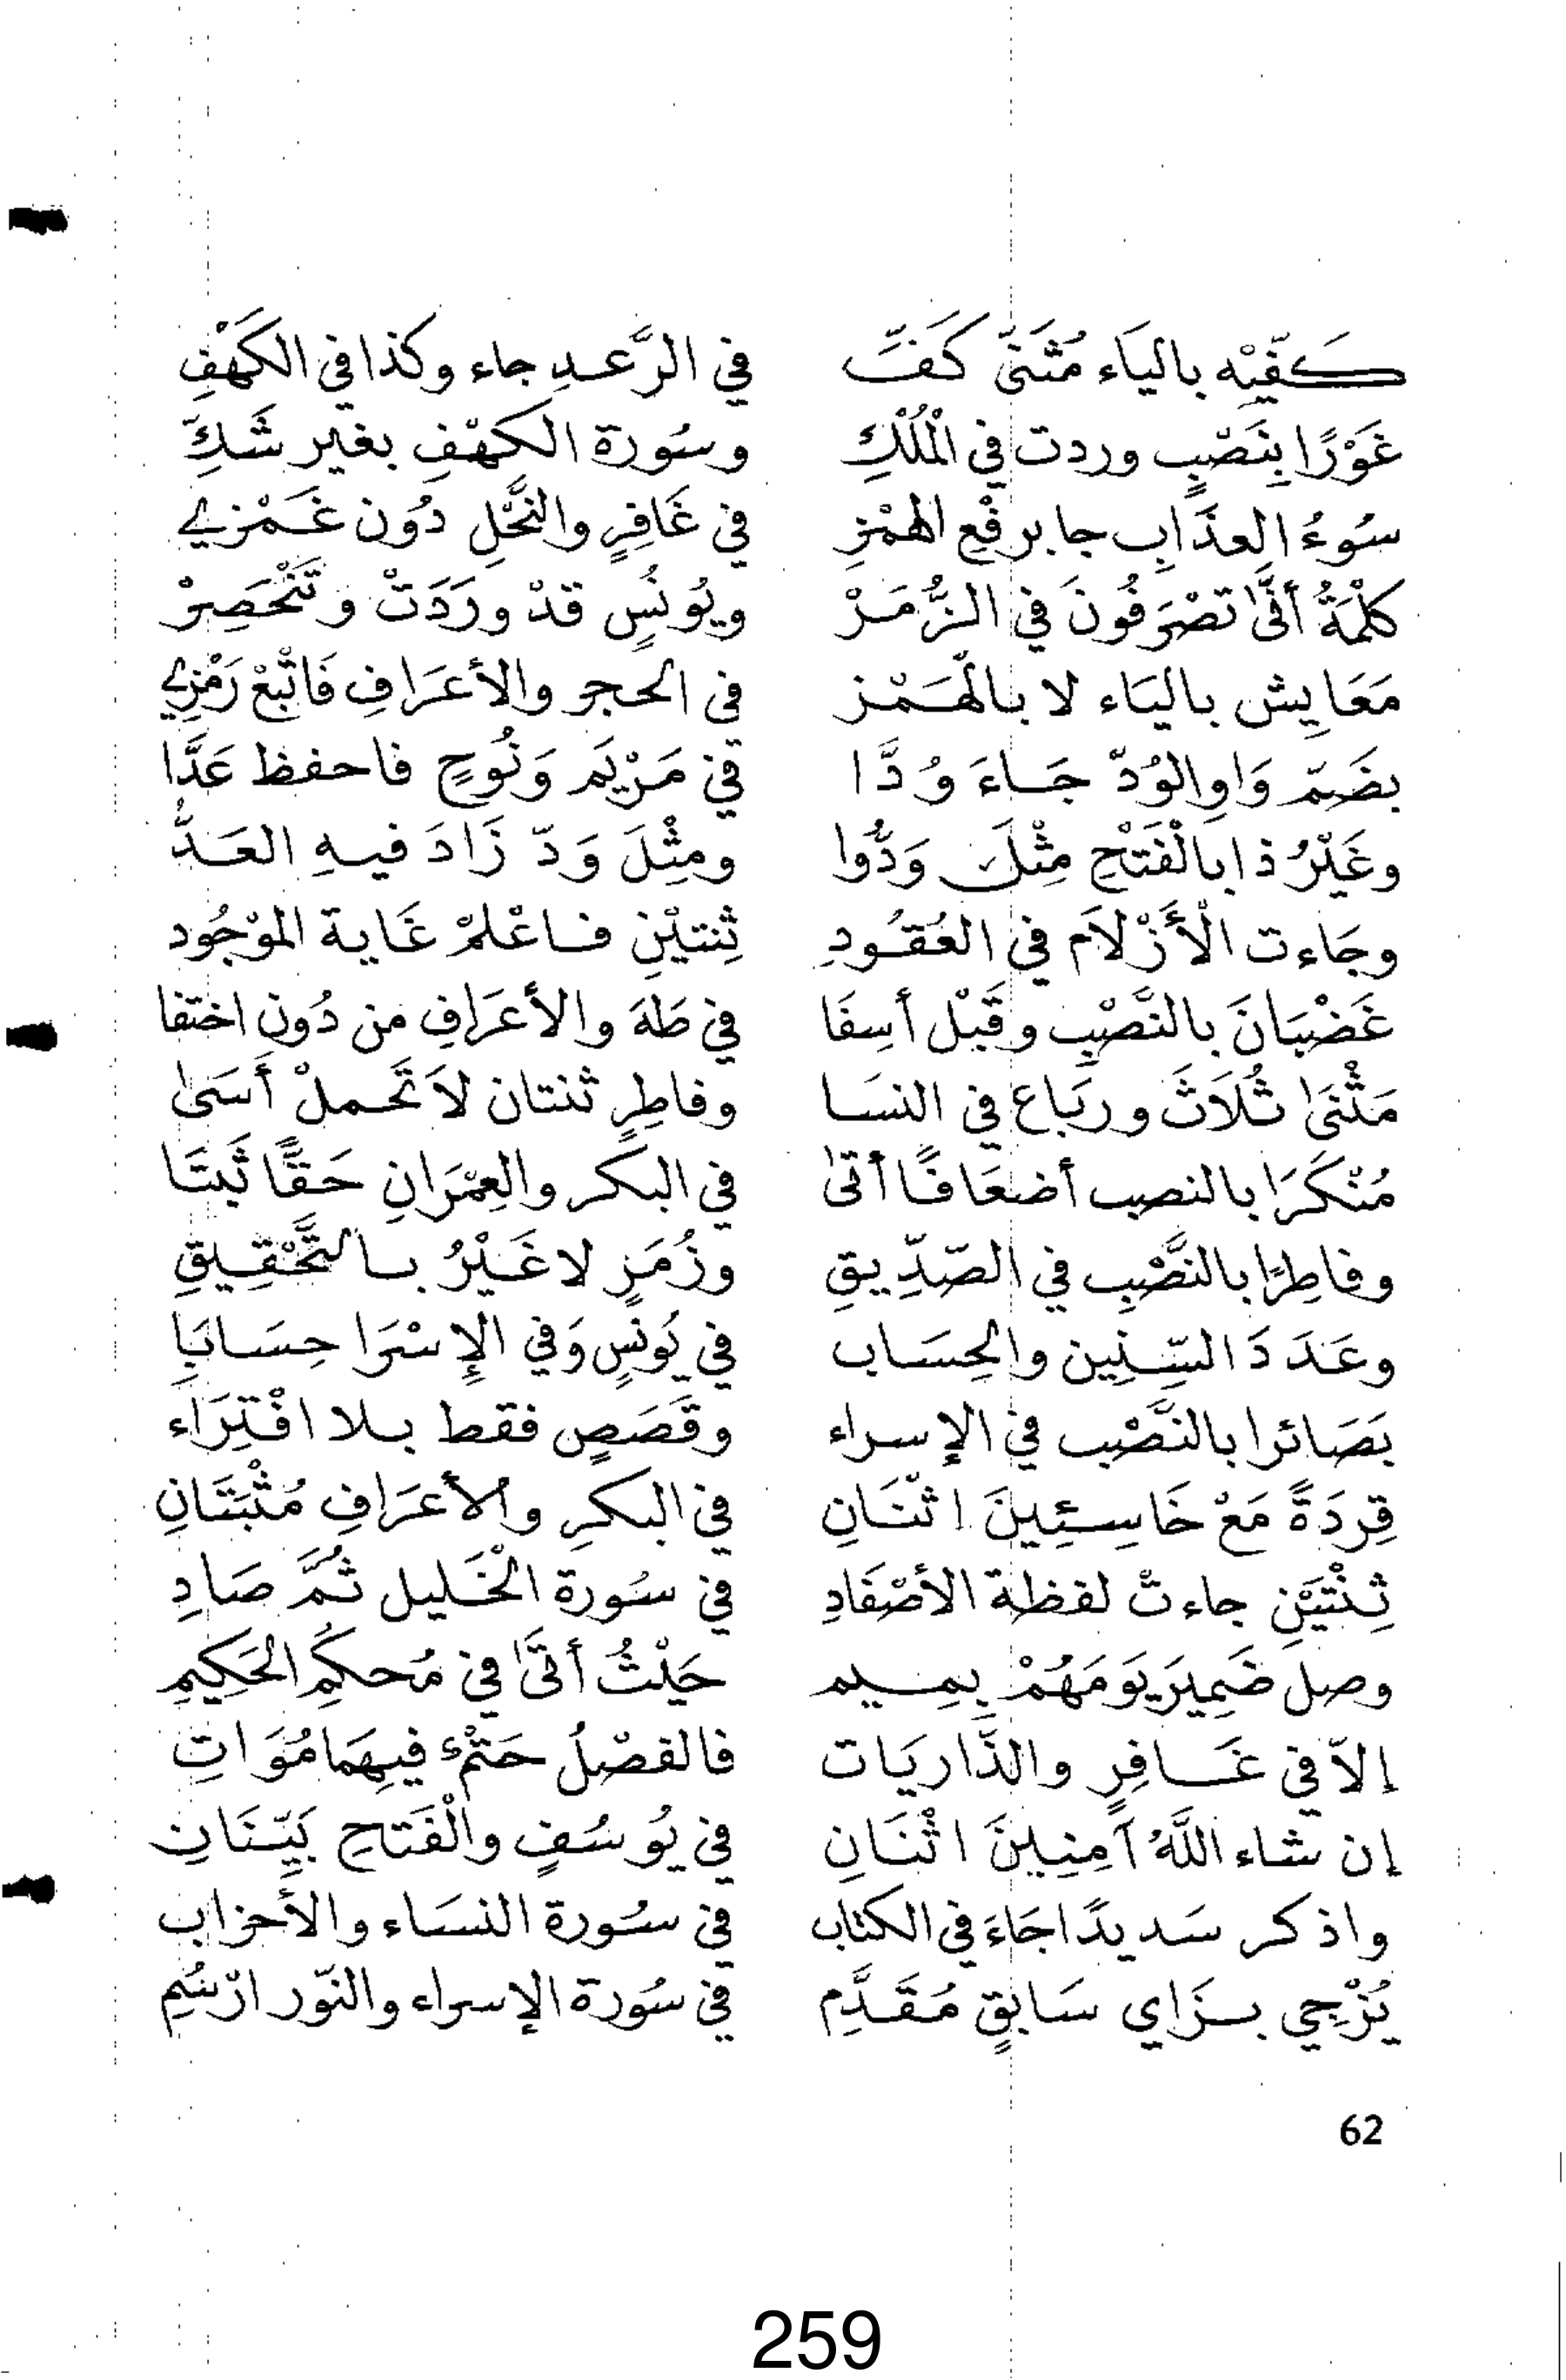 كَفَّيْهِ بالياَء مُثَنَّى كَفِّ في الرَّعدِ جاء وكذا في الكَهْفِ
غَوْرًا بِنَصْبٍ وردت في الْمُلْكِ وسُورة الكهْفِ بغير شَكِّ
سُوءُ العذَابِ جا برفْعِ الهمْزِ في غَافِرٍ والنَّحْلِ دُون غَمْزِي
كلْمَةُ أَنَّى تصْرَفُونَ في الزُّمَرْ ويُونُسٍ قدْ وردَتْ وتَنْحَصِرْ
مَعَايِش باليَاء لا بالْهَمْز في الحجر والأعرَافِ فَاتْبَعْ رَمْزِي
بضَمّ وَاوِ الوُدّ جَاءَ وُدَّا في مَرْيَم وَنُوحٍ فاحفظ عَدَّا
وغَيْرُ ذا بالْفَتْحِ مِثْلَ وَدُّوا ومِثْلَ وَدّ زَادَ فيهِ العَدُّ
وجَاءت الْأَزْلاَم في العُقُودِ ثِنتيْنِ فاعْلمْ غَاية الموْجُود
غَضْبَانَ بالنَّصْبِ وقَبْل أسِفَا في طَهَ والأعرَافِ من دُون اختفا
مَثْنَى ثُلَاثَ وربَاع في النسَا وفاطِرٍ ثنتان لاَ تَحملْ أَسَى
مُنْكَرَا بالنصب أضعَافًا أتى في البكر والعِمْرَانِ حَقًّا ثَبتَا
وفاطِرًا بالنَّصْبِ في الصّدِّيقِ وزُمَرٍ لا غَيْرُ بالتَّحْقِيقِ
وعَدَدَ السِّنِين والحِسَاب في يُونسٍ وَفي الإِسْرَا حِسَابَا
بَصَائرا بالنَّصْب في الإسراء وقَصَصٍ فقط بلا افْتِرَاء
قِردَةً مَعْ خَاسِئِينَ اثْنَانِ في البكرِ والأعرَافِ مُثْبَتَانِ
ثِنْتَيْنِ جاءتْ لفظة الأصْفَادِ في سُورة الْخَليل ثُمَّ صَادِ
وصل ضَمِيرَ يَومَهُمْ بِمِيم حَيْثُ أتَى في مُحكَمِ الحَكِيمِ
إلاّ في غَافِرٍ والذَّاريَات فالفصْلُ حَتْمٌ فيهِمَا مُوَاتِ
إن شاء اللَّهُ آمِنِينَ اثْنَانِ في يُوسُفٍ والْفَتحِ بَيِّنَانِ
واذكر سَديدًا جَاءَ في الكتاب في سُورة النسَاء والأحزاب
يُزْجِي بزَاي سَابقٍ مُقَدَّم في سُورة الإسراء والنّور ارْسُمِ
62
259